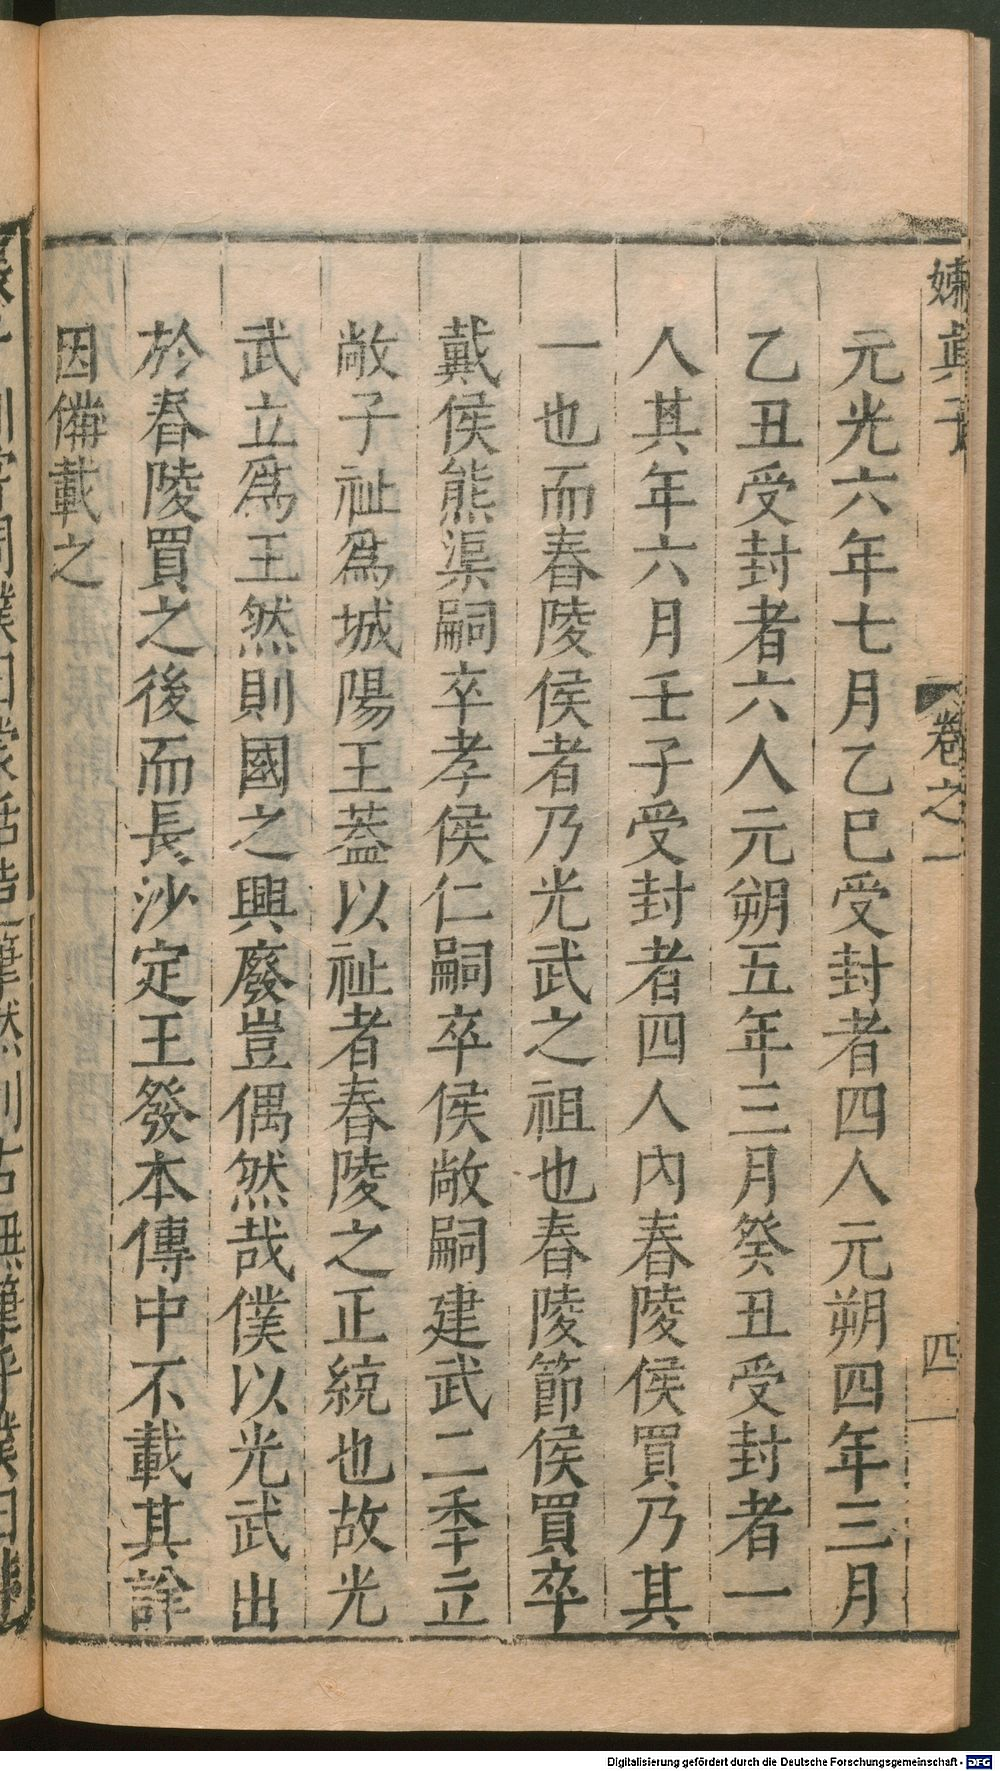 嬾眞子
卷之一
四
元光六年七月乙巳受封者四人元朔四年三月
乙丑受封者六人元朔五年三月癸丑受封者一
人其年六月壬子受封者四人內春陵侯買乃其
一也而春陵侯者乃光武之祖也春陵節侯買卒
戴侯熊渠嗣卒孝侯仁嗣卒侯敞嗣建武二秊立
敞子祉爲城陽王蓋以祉者春陵之正統也故光
武立爲王然則國之興廢豈偶然哉僕以光武出
於春陵買之後而長沙定王發本傳中不載其詳
因備載之
Digitalisierung gefördert durch die Deutsche Forschungsgemeinschaft - DFG